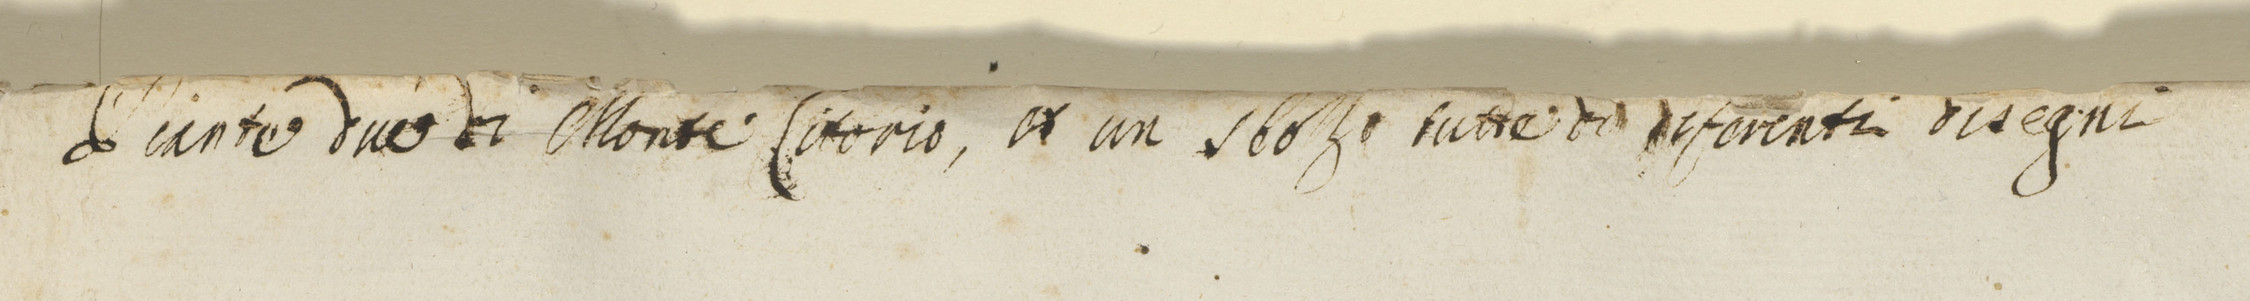 Piante due di Monte Citorio, et un sbozzo tutte di diferenti disegni